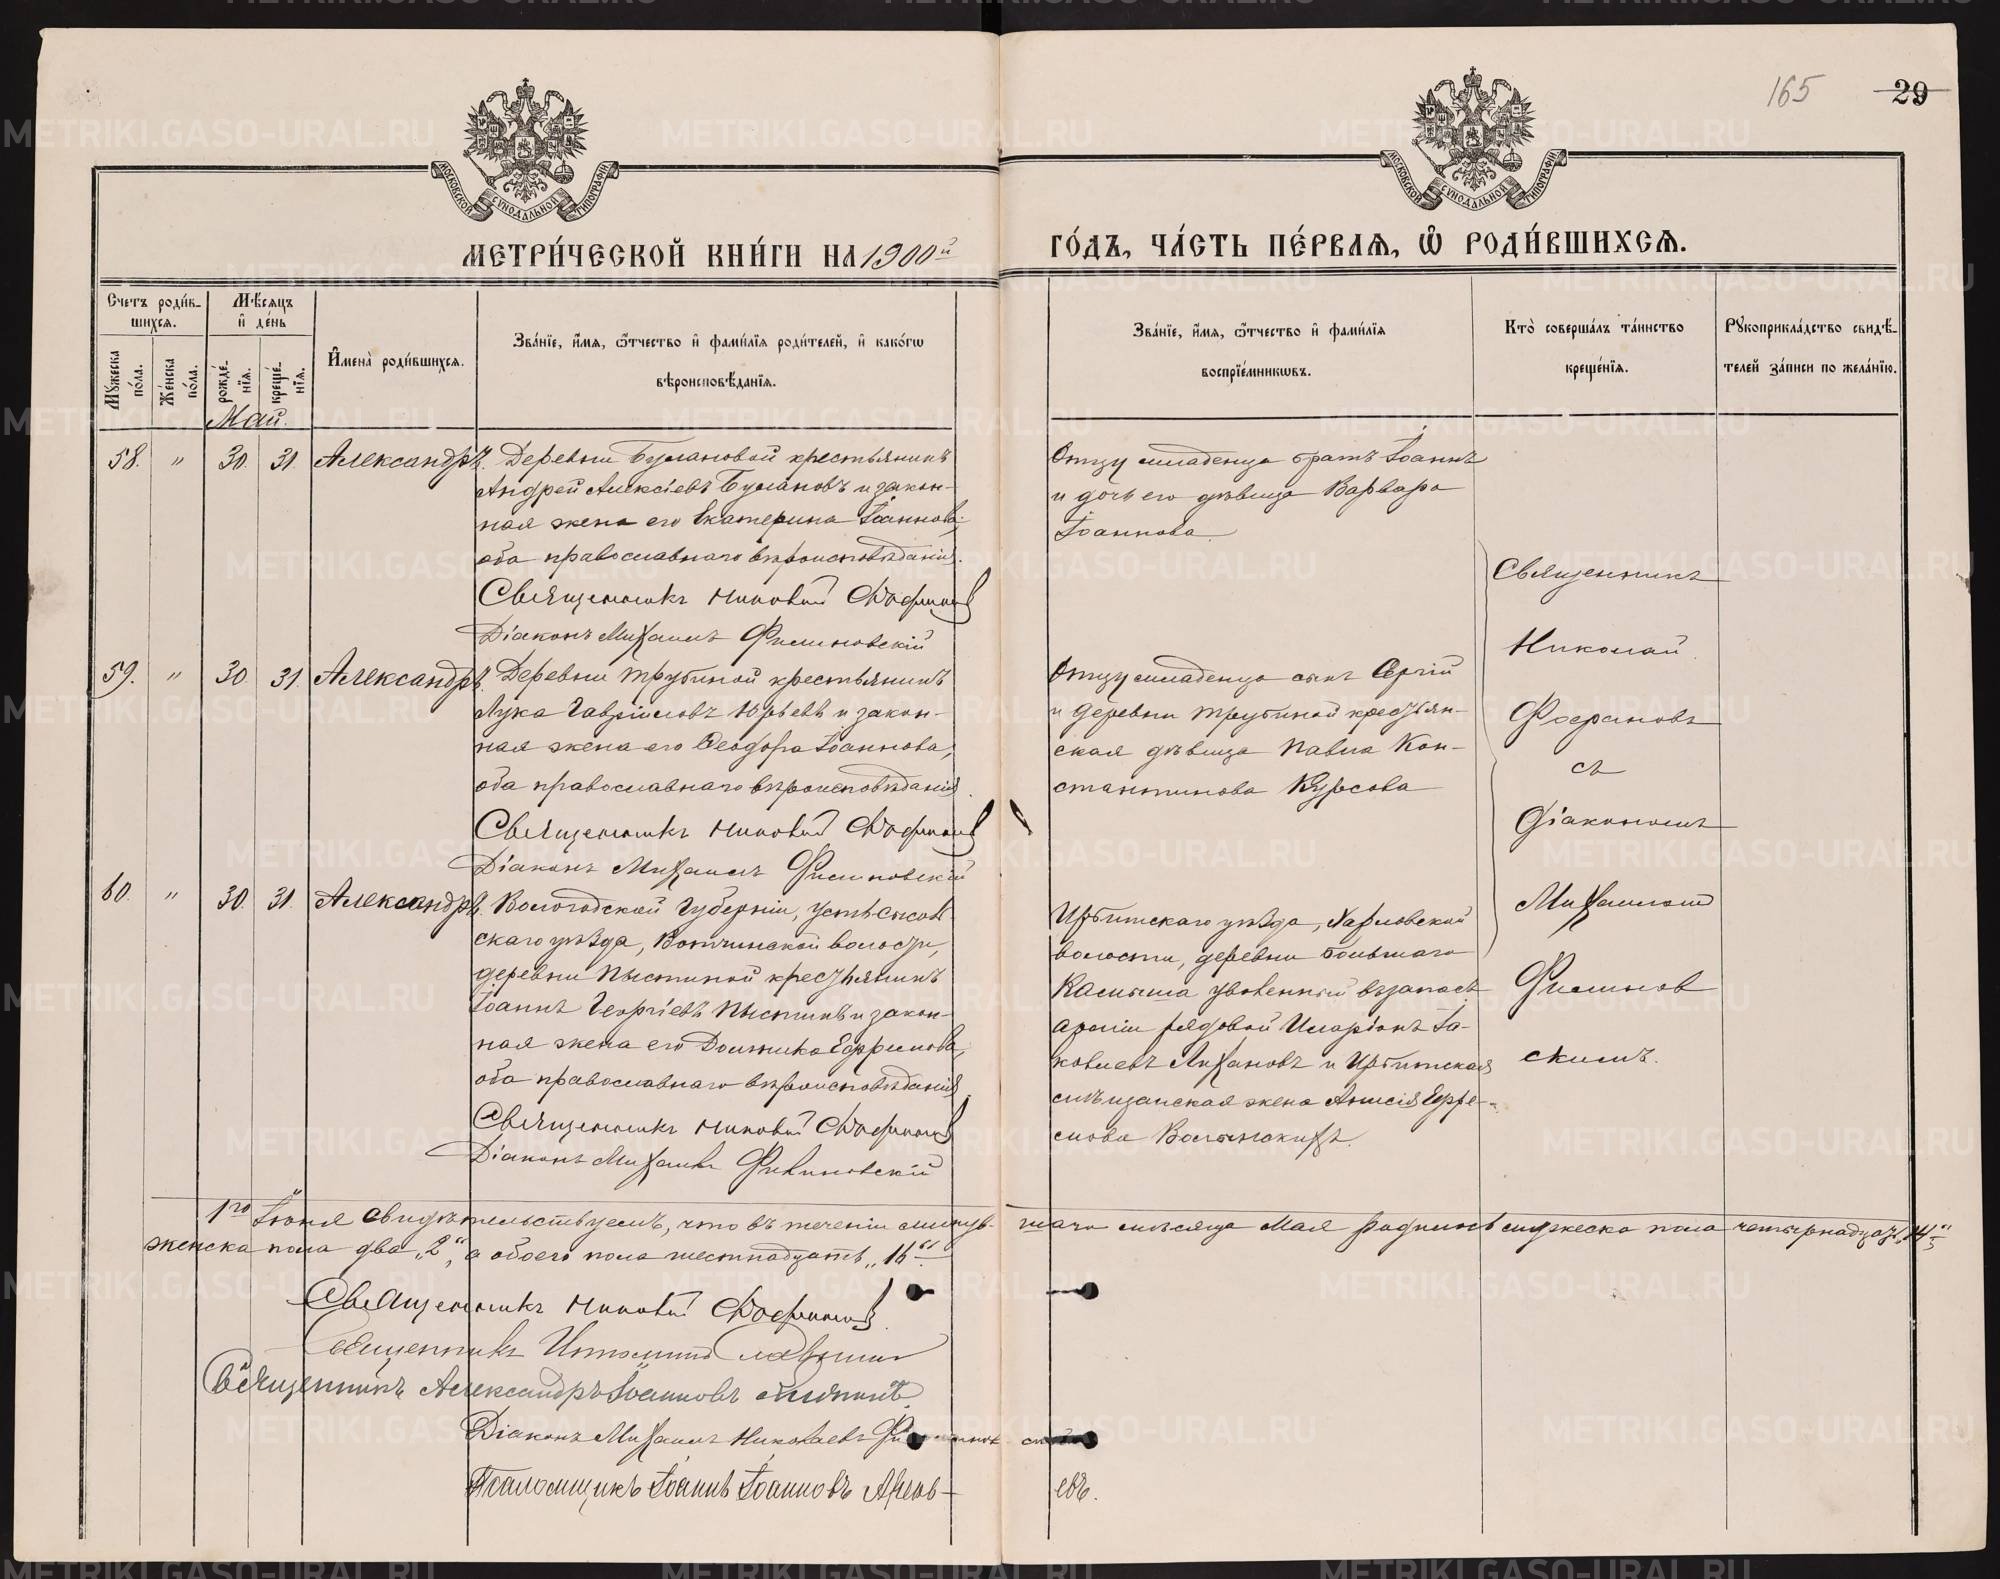 165
29
МОСКОВСКОЙ СѴНОДАЛЬНОЙ ТИПОГРАФІИ
МОСКОВСКОЙ СѴНОДАЛЬНОЙ ТИПОГРАФІИ
МЕТРИ́ЧЕСКОЙ КНИ́ГИ НА 1900й
ГО́ДЪ, ЧА́СТЬ ПЕ́РВАѦ, Ѡ҆ РОДИ́ВШИХСѦ.
Счетъ роди́в-
шихсѧ.
Мѣ́сѧцъ
и҆ де́нь
Мꙋ́жеска
по́ла.
Же́нска
по́ла.
рожде́-
нїѧ.
креще́-
нїѧ.
И҆мена̀ роди́вшихсѧ.
Зва́нїе, и҆́мѧ, ѻ҆́тчество и҆ фами́лїѧ роди́телей, и҆ како́гѡ
вѣроисповѣ́данїѧ.
Зва́нїе, и҆́мѧ, ѻ҆́тчество и҆ фами́лїѧ
воспрїе́мникѡвъ.
Кто̀ соверша́лъ та́инство
креще́нїѧ.
Рꙋкоприкла́дство свидѣ́-
телей за́писи по жела́нїю.
Май.
58. " 30. 31. Александръ. Деревни Булановой крестьянинъ
Андрей Алексіевъ Булановъ и закон-
ная жена его Екатерина Іоаннова,
оба православнаго вѣроисповѣданія.
Священникъ Николай
Діаконъ Михаилъ Филиновскій
Отцу младенца братъ Іоаннъ
и дочь его дѣвица Варвара
Іоаннова.
59. " 30. 31. Александръ. Деревни Трубиной крестьянинъ
Лука Гавріиловъ Юрьевъ и закон-
ная жена его Ѳеодора Іоаннова,
оба православнаго вѣроисповѣданія.
Священникъ Николай
Діаконъ Михаилъ Филиновскій
Отцу младенца сынъ Сергій
и деревни Трубиной крестьян-
ская дѣвица Павла Кон-
стантинова Курсова
60. " 30. 31. Александръ. Вологодской Губерніи, Устьсысоль-
скаго уѣзда, Вотчинской волости,
деревни Пыстиной крестьянинъ
Іоаннъ Георгіевъ Пыстинъ и закон-
ная жена его Домника Ефремова,
оба православнаго вѣроисповѣданія
Священникъ Николай
Діаконъ Михаилъ Филиновскій
Ирбитскаго уѣзда, Харловской
волости, деревни Большаго
Камыша уволенный въ запасъ
арміи рядовой Иларіонъ Іа-
ковлевъ Лихановъ и Ирбитская
мѣщанская жена Анисія Ефре-
мова
Священникъ
Николай
съ
Діакономъ
Михаиломъ
Филинов
скимъ.
1го Іюня свидѣтельствуемъ, что въ теченіи минув- шаго мѣсяца Мая родилось мужеска пола четырнадцать „14"
женска пола два „2", а обоего пола шестнадцать „16"
Священникъ Николай
Священникъ
Священникъ Александръ Іоанновъ
Діаконъ Михаилъ Николаевъ
Псаломщикъ Іоаннъ Іоанновъ Арень-
евъ.